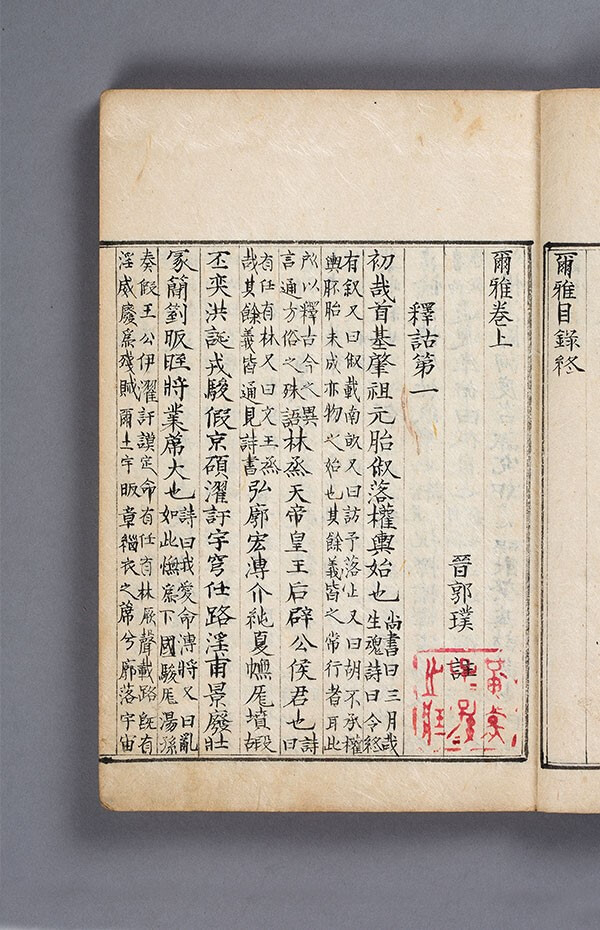 爾雅目錄終
爾雅卷上
晉郭璞 註
釋詁第一
初哉首基肇祖元胎俶落權輿始也
尚書曰三月哉
生魂詩曰令終
有俶又曰俶載南畝又曰訪予落止又曰胡不承權
輿胚胎未成亦物之始也其餘義皆之常行者耳此
所以釋古今之異
言通方俗之殊語
林烝天帝皇王后辟公侯君也
詩
曰
有任有林又曰文王烝
哉其餘義皆通見詩書
弘廓宏溥介純夏幠厖墳嘏
丕奕洪誕戎駿假京碩濯訏宇穹仕路淫甫景廢壯
冢簡箌昄晊將業席大也
詩曰我愛命溥將又曰亂
如此幠爲下國駿厖湯孫
奏假王公伊濯訏謨定命有任有林厥聲載路既有
淫威慶爲殘賊爾土宇昄章緇衣之席兮廓落宇宙